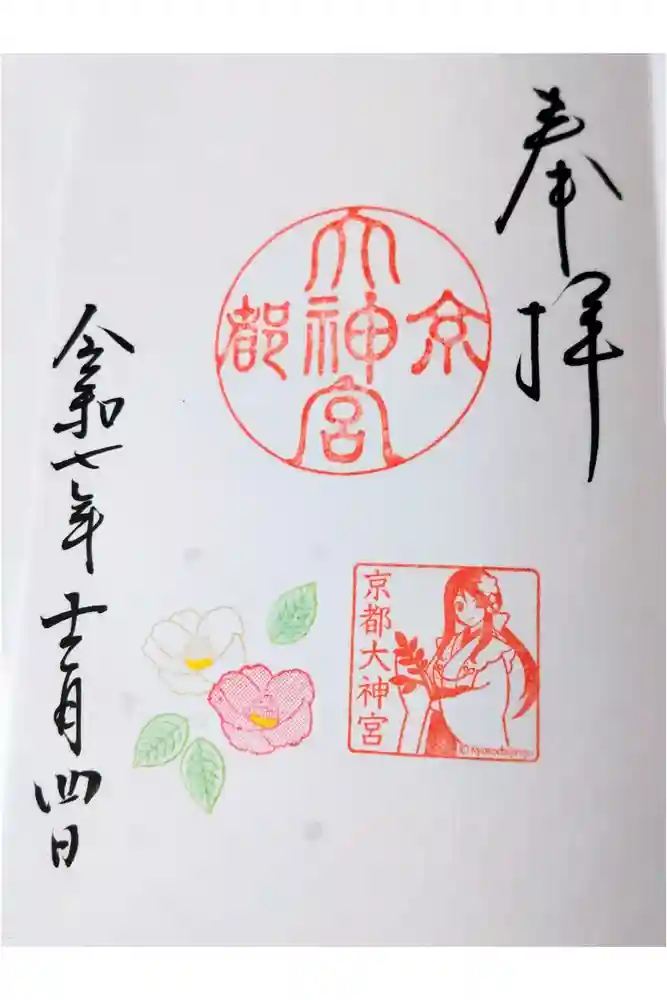 奉拝
京都
大神宮
京都大神宮
© kyotodaijingu
令和七年十二月四日